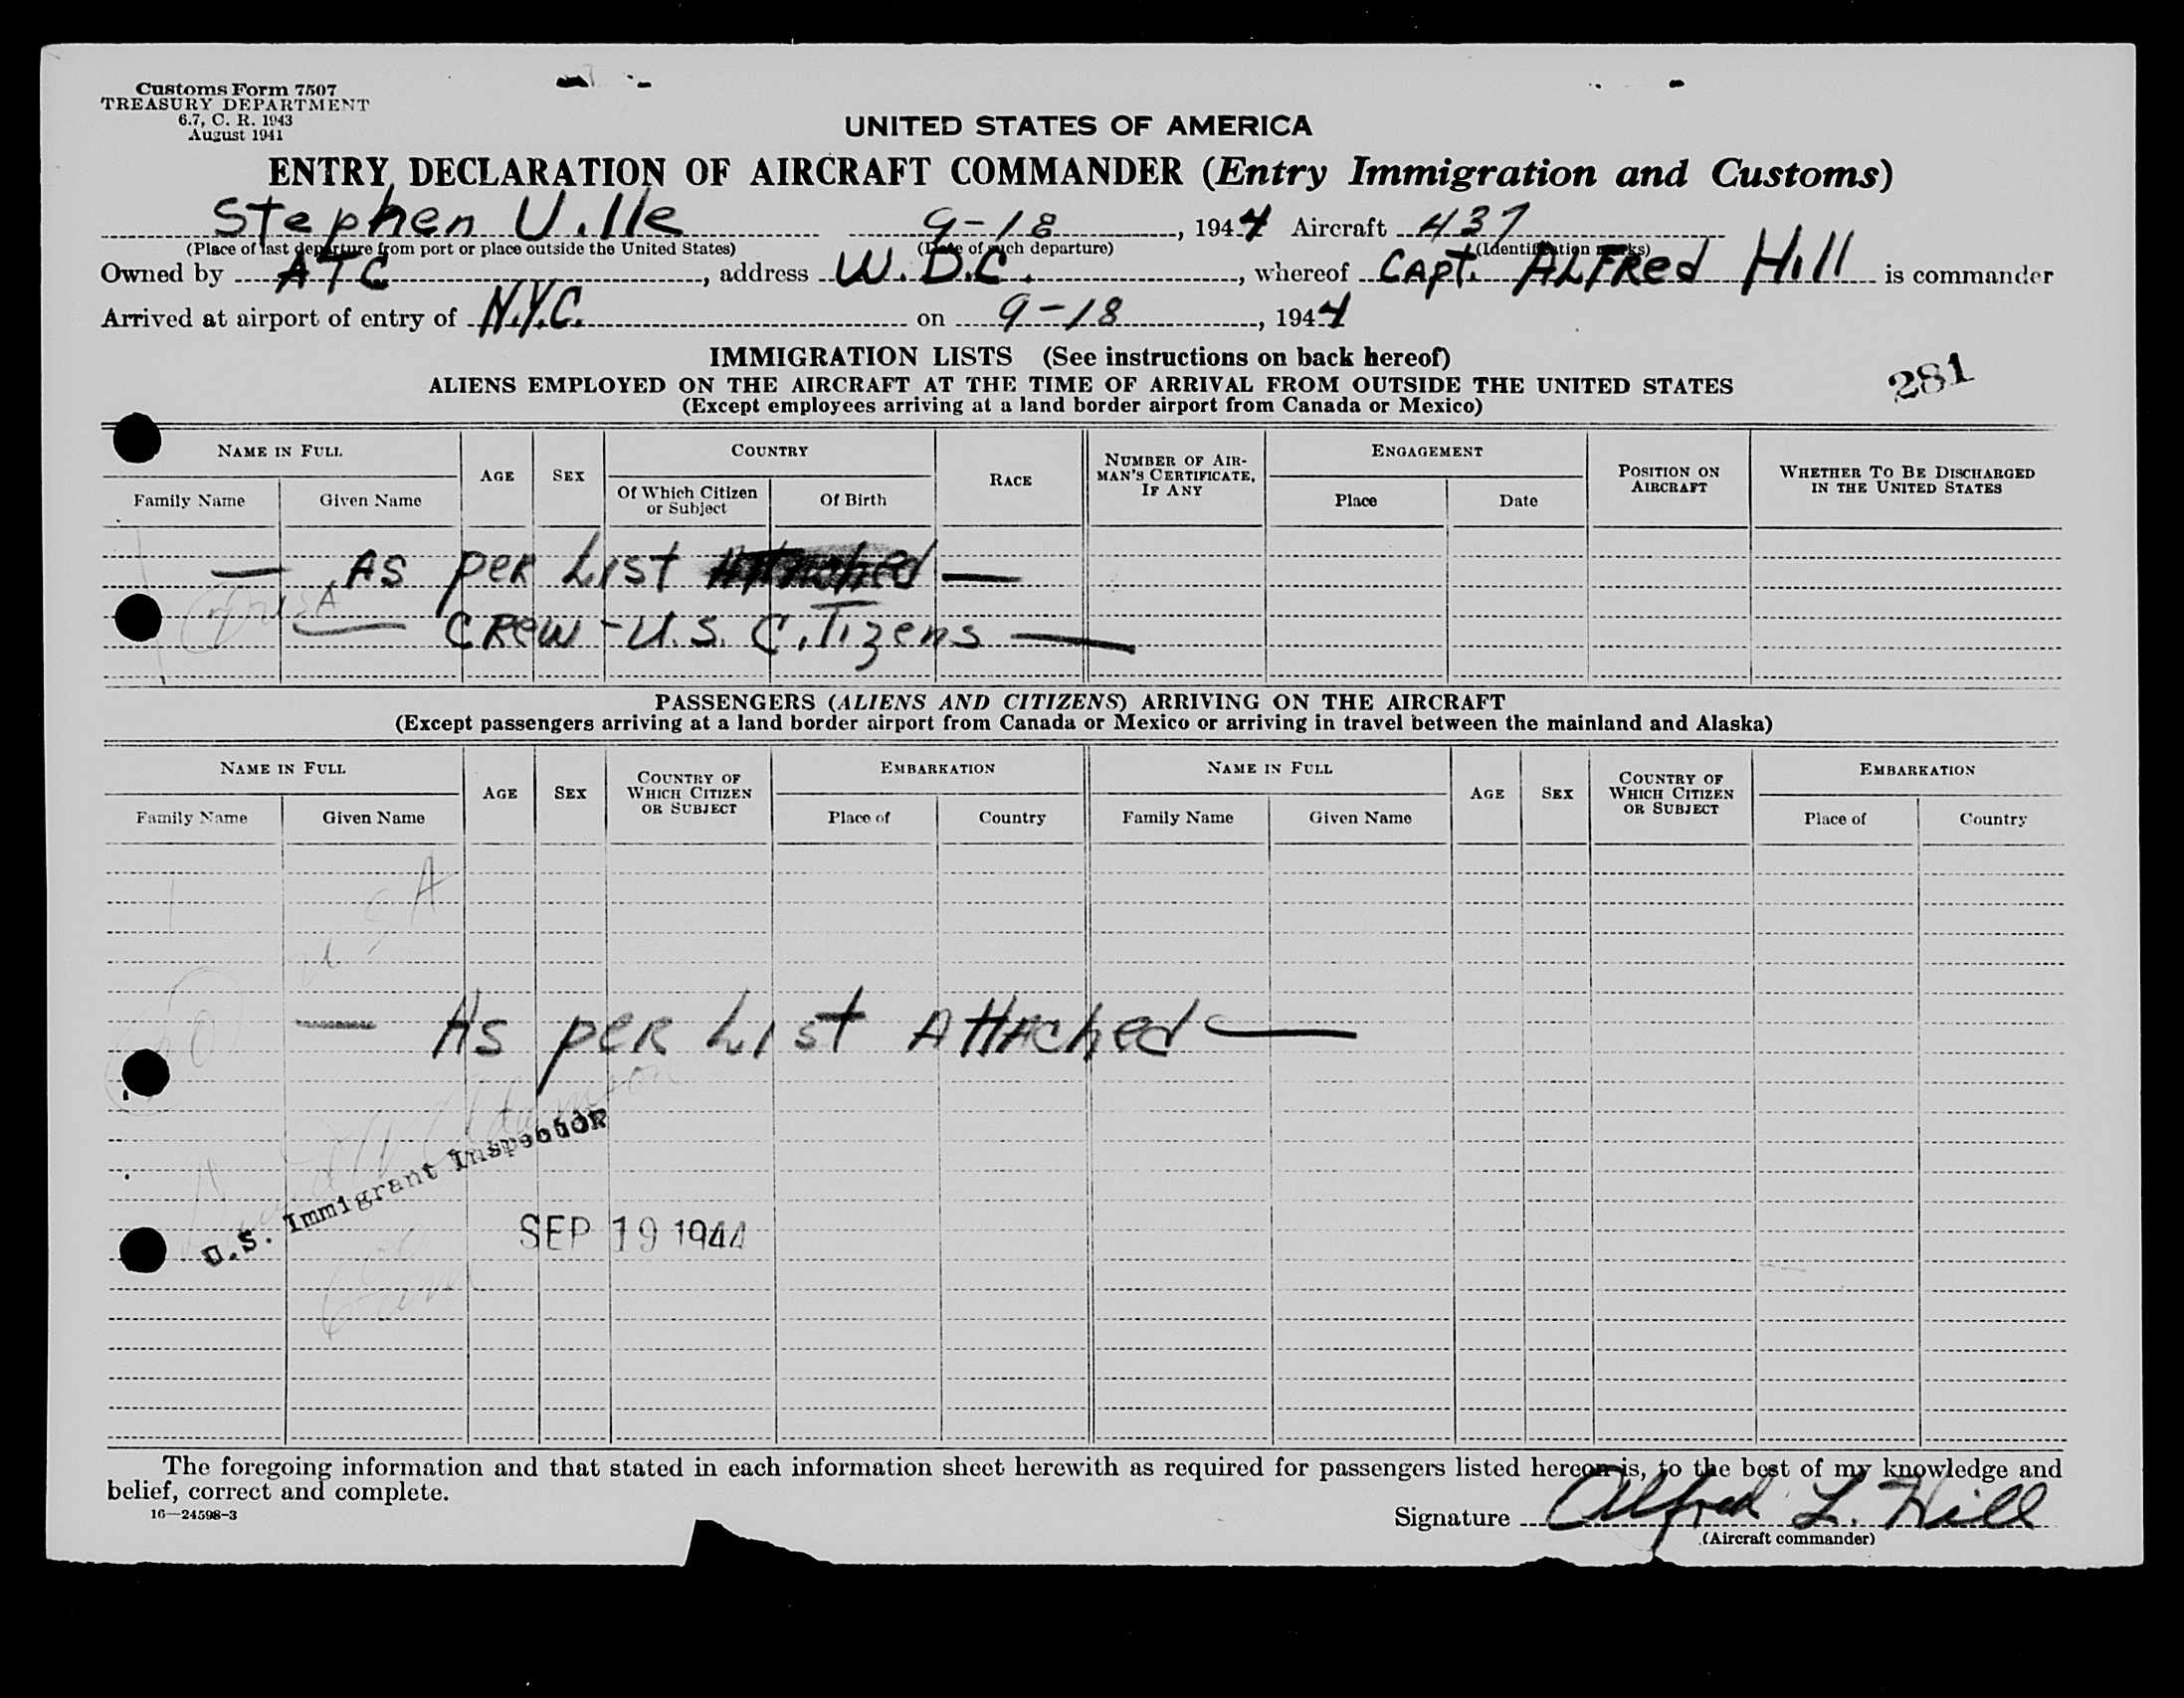 Customs Form 7507
TREASURY DEPARTMENT
6.7, C. R. 1943
August 1941
UNITED STATES OF AMERICA
ENTRY DECLARATION OF AIRCRAFT COMMANDER (Entry Immigration and Customs)
Stephen Ville 9-18, 1944 Aircraft 437
(Place of last departure from port or place outside the United States) (Date of such departure) (Identification marks)
Owned by ATC, address W.D.C., whereof Capt. Alfred Hill is commander
Arrived at airport of entry of N.Y.C. on 9-18, 1944
IMMIGRATION LISTS (See instructions on back hereof)
281
ALIENS EMPLOYED ON THE AIRCRAFT AT THE TIME OF ARRIVAL FROM OUTSIDE THE UNITED STATES
(Except employees arriving at a land border airport from Canada or Mexico)
NAME IN FULL AGE SEX COUNTRY RACE NUMBER OF AIRMAN'S CERTIFICATE, IF ANY ENGAGEMENT POSITION ON AIRCRAFT WHETHER TO BE DISCHARGED IN THE UNITED STATES
Family Name Given Name Of Which Citizen or Subject Of Birth Place Date
— As per List Attached —
— Crew - U.S. Citizens —
PASSENGERS (ALIENS AND CITIZENS) ARRIVING ON THE AIRCRAFT
(Except passengers arriving at a land border airport from Canada or Mexico or arriving in travel between the mainland and Alaska)
NAME IN FULL AGE SEX COUNTRY OF WHICH CITIZEN OR SUBJECT EMBARKATION NAME IN FULL AGE SEX COUNTRY OF WHICH CITIZEN OR SUBJECT EMBARKATION
Family Name Given Name Place of Country Family Name Given Name Place of Country
USA
— As per List Attached —
U.S. Immigrant Inspector
SEP 19 1944
The foregoing information and that stated in each information sheet herewith as required for passengers listed hereon is, to the best of my knowledge and
belief, correct and complete.
16—24598-3
Signature Alfred L. Hill
(Aircraft commander)